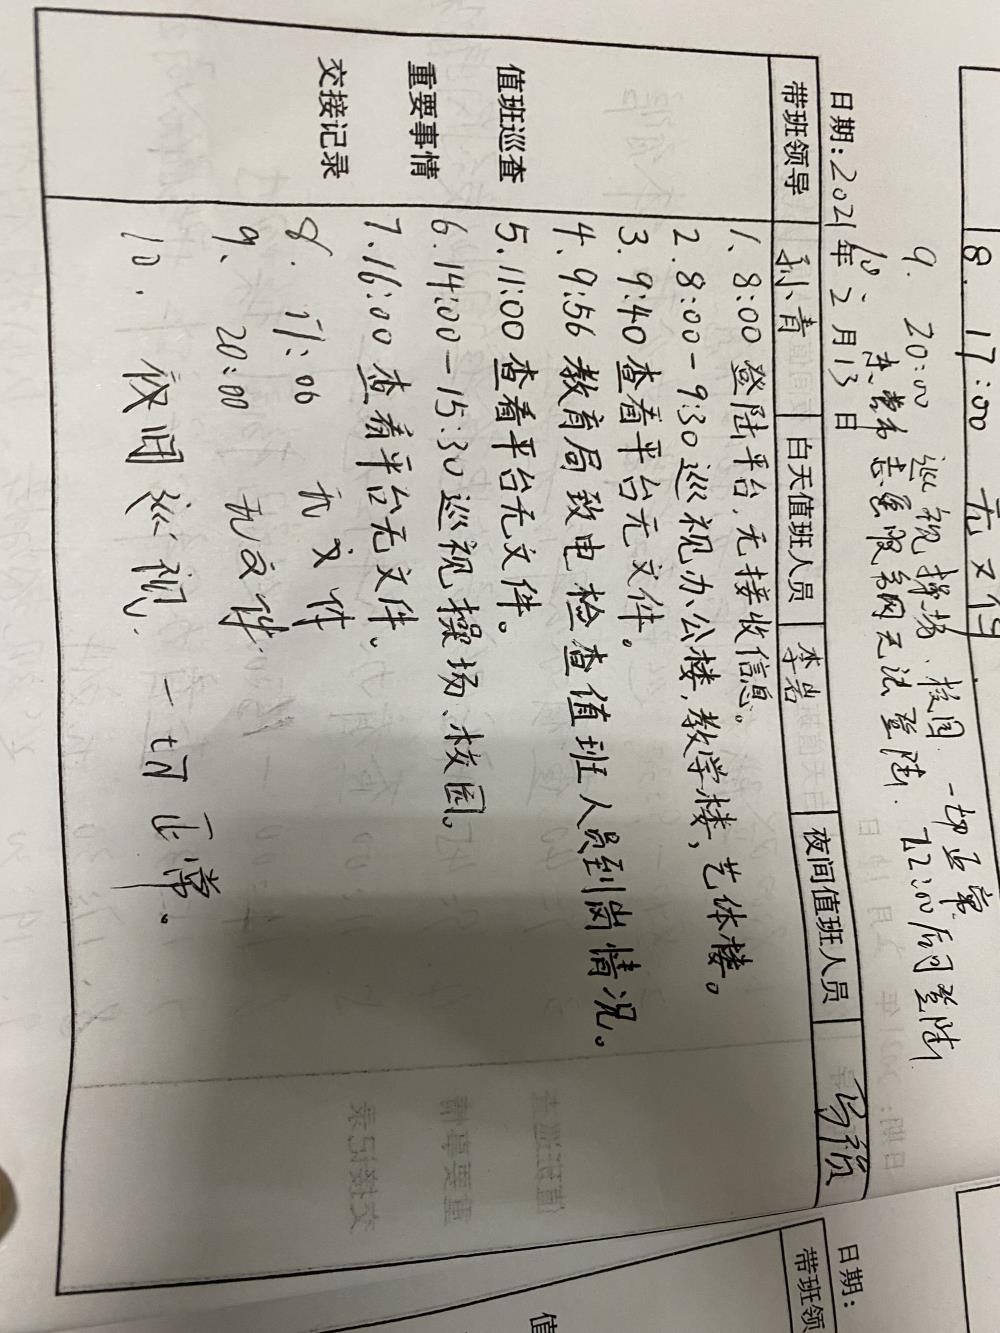 8. 17:00 无文件
9. 20:00 巡视操场、校园 一切正常
10、 系网无法登陆. 22:00后可登陆
日期:2021年2月13日
带班领导 孙小青 白天值班人员 李岩 夜间值班人员
值班巡查
重要事情
交接记录
1、8:00登陆平台,无接收信息。
2.8:00-9:30巡视办公楼,教学楼,艺体楼。
3.9:40查看平台无文件。
4、9:56教育局致电检查值班人员到岗情况。
5.11:00查看平台无文件。
6.14:00-15:30巡视操场、校园。
7.16:00查看平台无文件。
8. 17:00 无文件
9、 20:00 无文件
10. 夜间巡视, 一切正常。
日期:
带班领
值